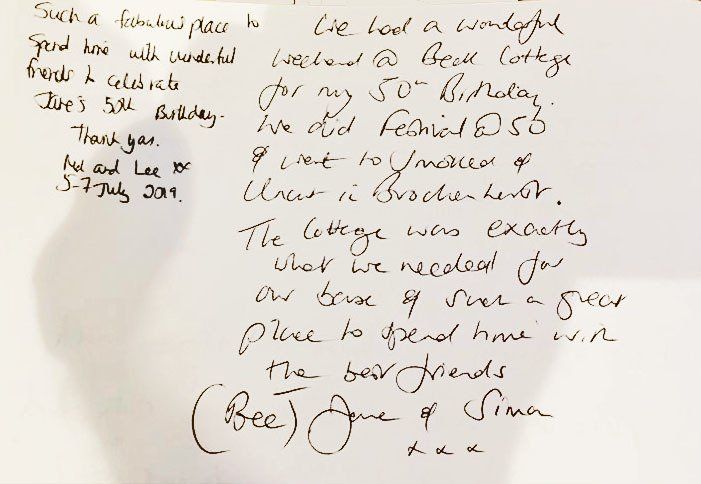 Such a fabulous place to
spend time with wonderful
friends to celebrate
Jane's 50th Birthday.
Thank you.
and Lee xx
5-7 July 2019.
We had a wonderful
weekend @ Beck Cottage
for my 50th Birthday.
We did Festival @ 50
& went to Smoked &
Uncut in Brockenhurst.
The Cottage was exactly
what we needed for
our base & such a great
place to spend time with
the best friends
(Bee) Jane & Simon
x x x